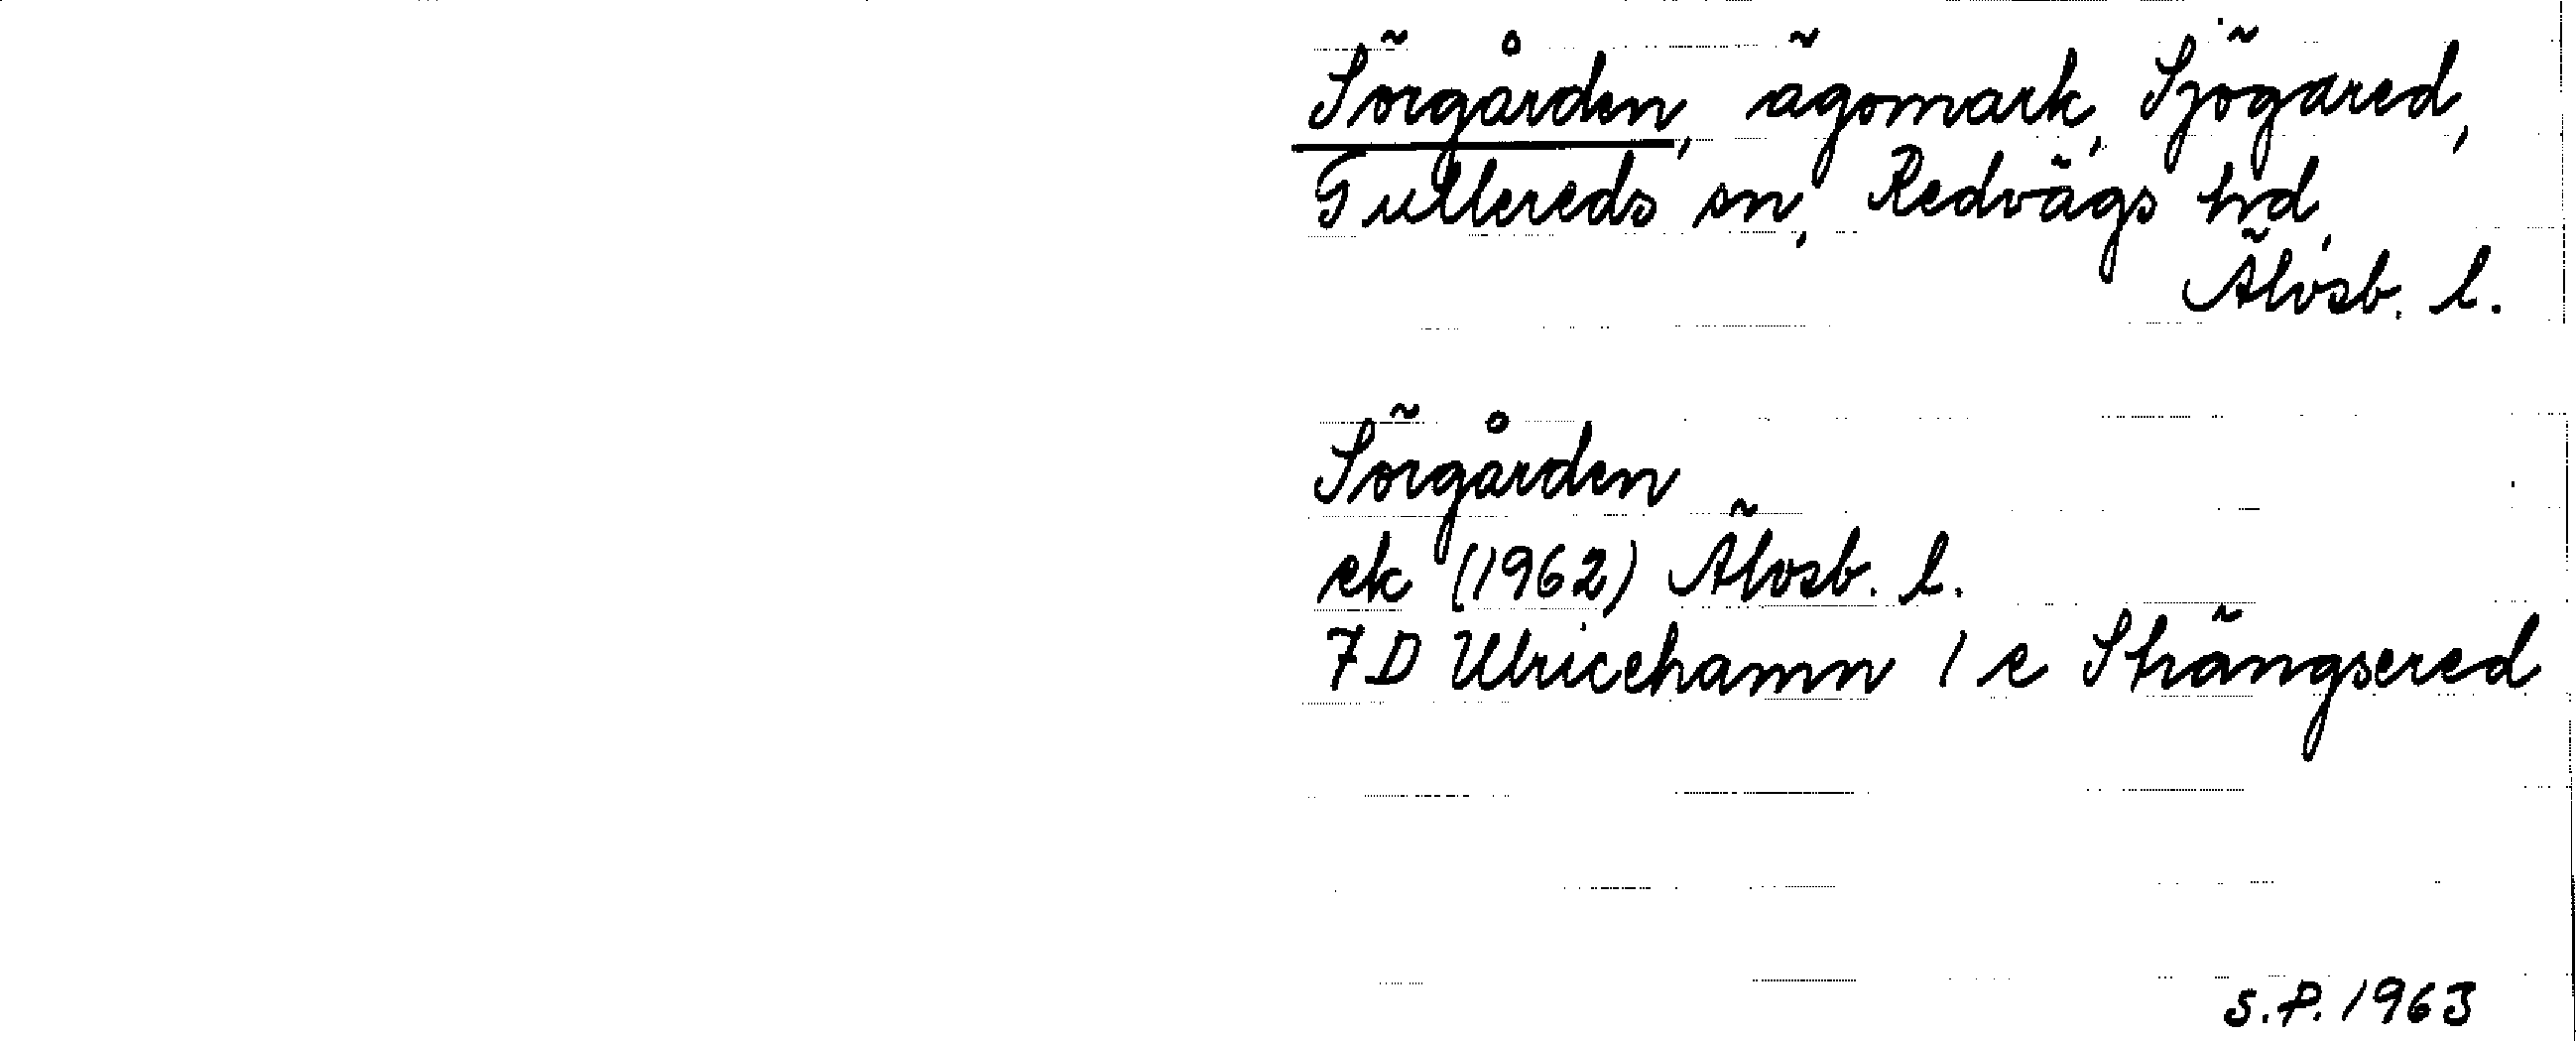 Sörgården, ägomark, Sjögared,
Gullereds sn, Redvägs hd,
Älvsb. l.
Sörgården
ek (1962) Älvsb. l.
7D Ulricehamn 1 e Strängsered
S.P. 1963